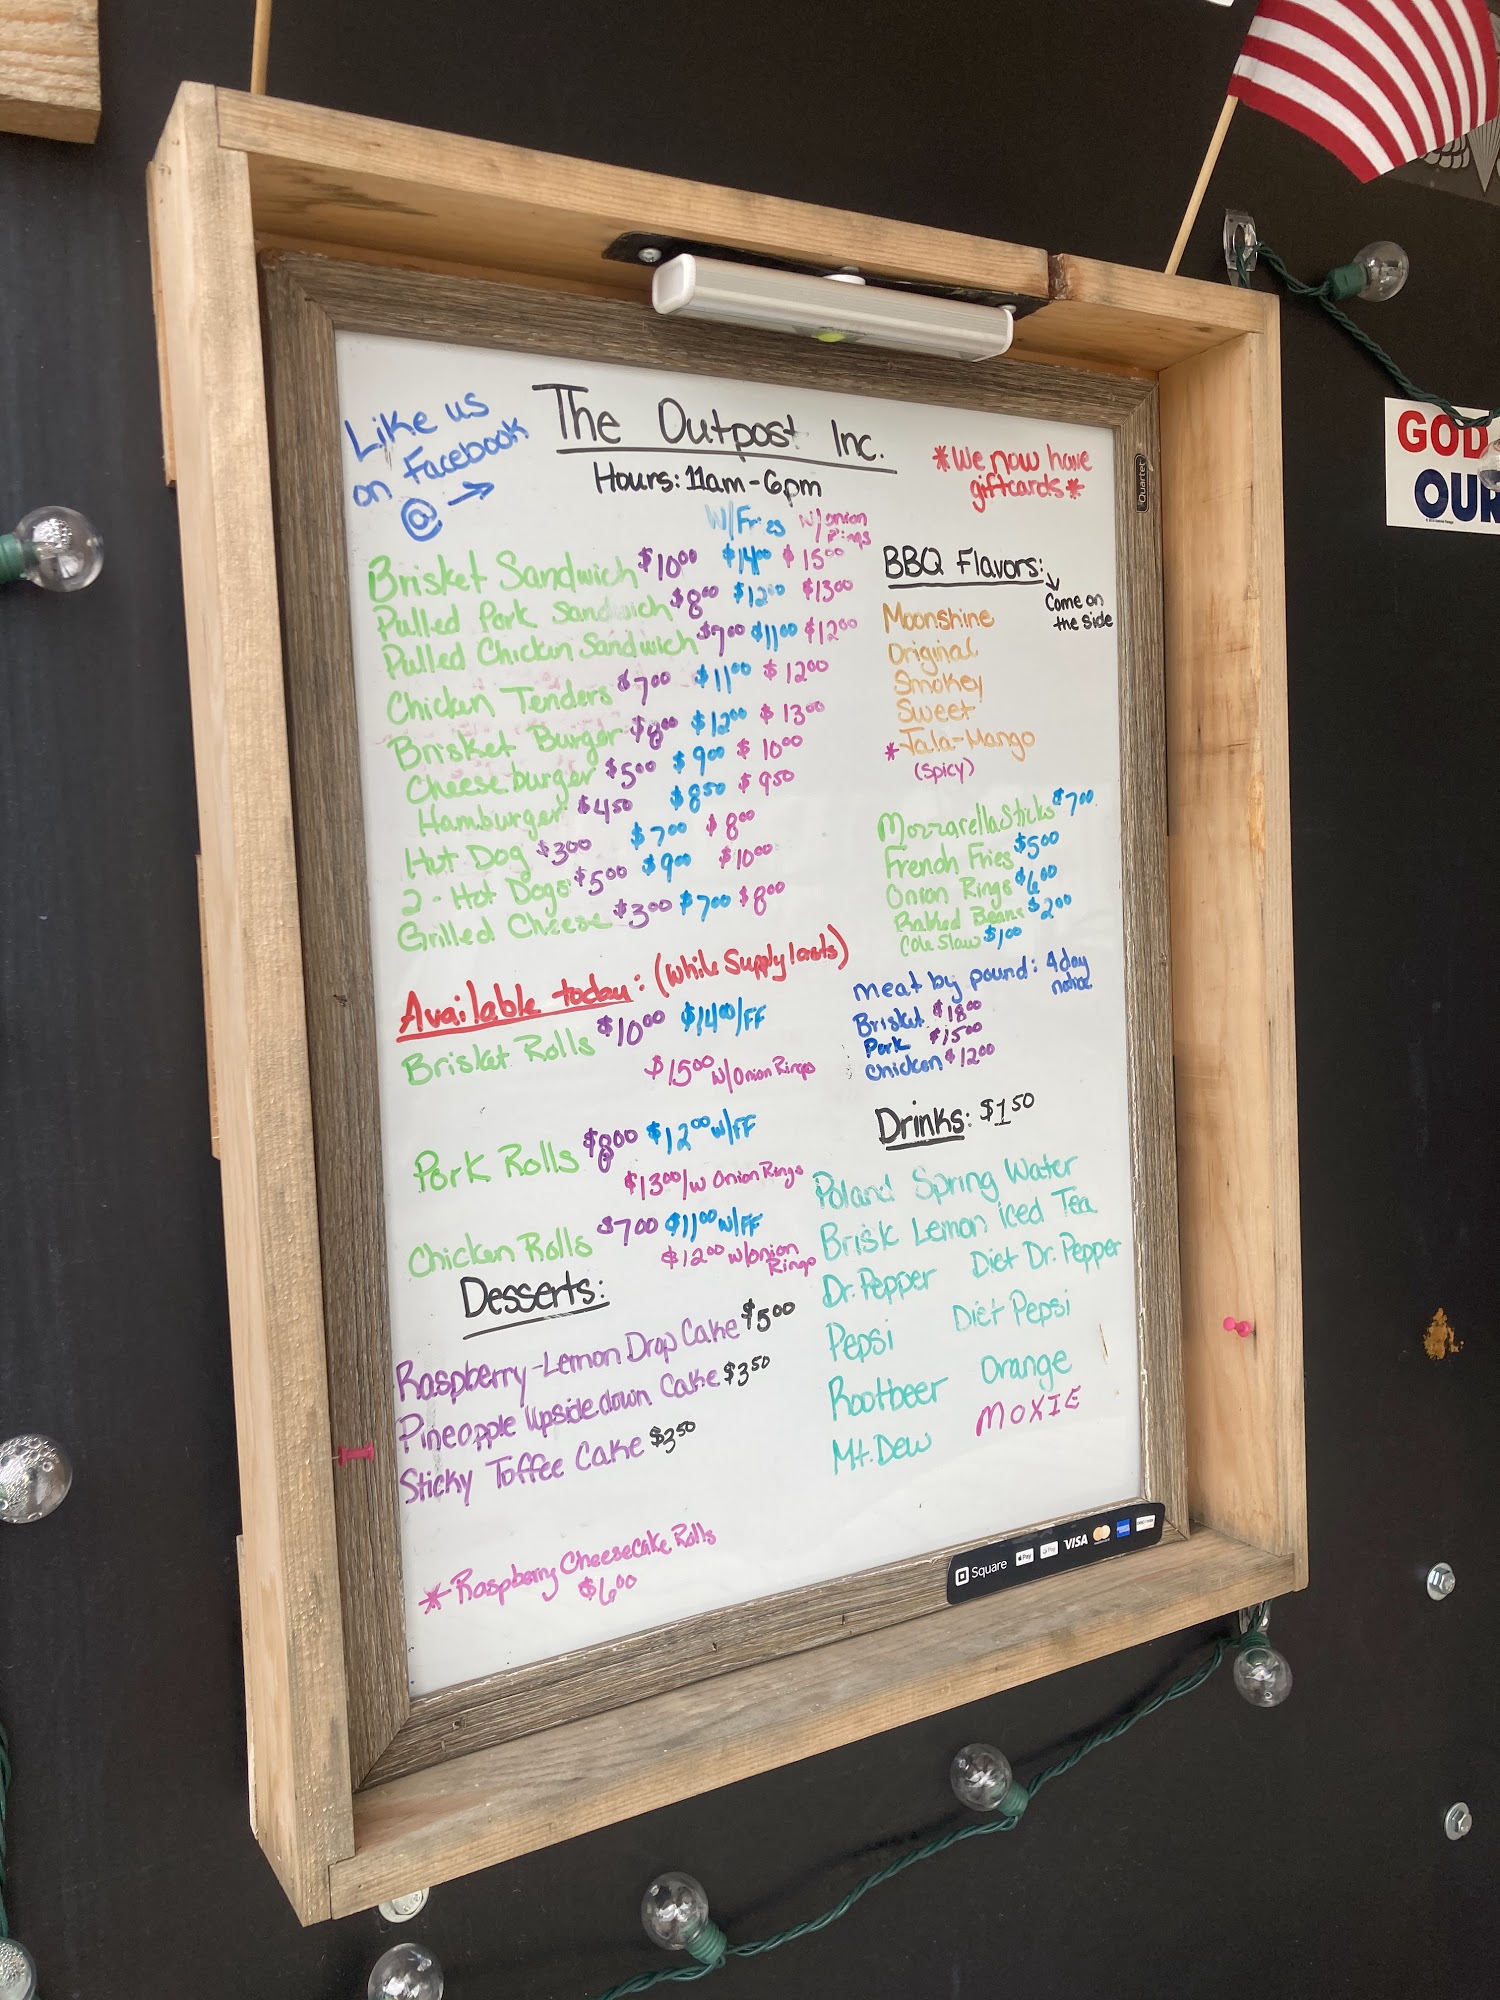 Like us
on Facebook
@ →
The Outpost Inc.
Hours: 11am-6pm
*We now have
giftcards*
Quartet
W/Fries W/onion
Rings
Brisket Sandwich $10.00 $14.00 $15.00
Pulled Pork Sandwich $8.00 $12.00 $13.00
Pulled Chicken Sandwich $7.00 $11.00 $12.00
Chicken Tenders $7.00 $11.00 $12.00
Brisket Burger $8.00 $12.00 $13.00
Cheeseburger $5.00 $9.00 $10.00
Hamburger $4.50 $8.50 $9.50
Hot Dog $3.00 $7.00 $8.00
2-Hot Dogs $5.00 $9.00 $10.00
Grilled Cheese $3.00 $7.00 $8.00
Available today: (While Supply lasts)
Brisket Rolls $10.00 $14.00/FF
$15.00 w/Onion Rings
Pork Rolls $8.00 $12.00 w/FF
$13.00/w Onion Rings
Chicken Rolls $7.00 $11.00 w/FF
$12.00 w/onion
Rings
Desserts:
Raspberry-Lemon Drop Cake $5.00
Pineapple Upsidedown Cake $3.50
Sticky Toffee Cake $3.50
*Raspberry Cheesecake Rolls
$6.00
BBQ Flavors:
Come on
the side
Moonshine
Original
Smokey
Sweet
*Jala-Mango
(Spicy)
Mozzarella Sticks $7.00
French Fries $5.00
Onion Rings $6.00
Baked Beans $2.00
Cole Slaw $1.00
Meat by pound: 4 day
notice
Brisket $18.00
Pork $15.00
Chicken $12.00
Drinks: $1.50
Poland Spring Water
Brisk Lemon iced Tea
Dr. Pepper Diet Dr. Pepper
Pepsi Diet Pepsi
Rootbeer Orange
Mt. Dew MOXIE
Square Pay Pay VISA
GOD
OUR